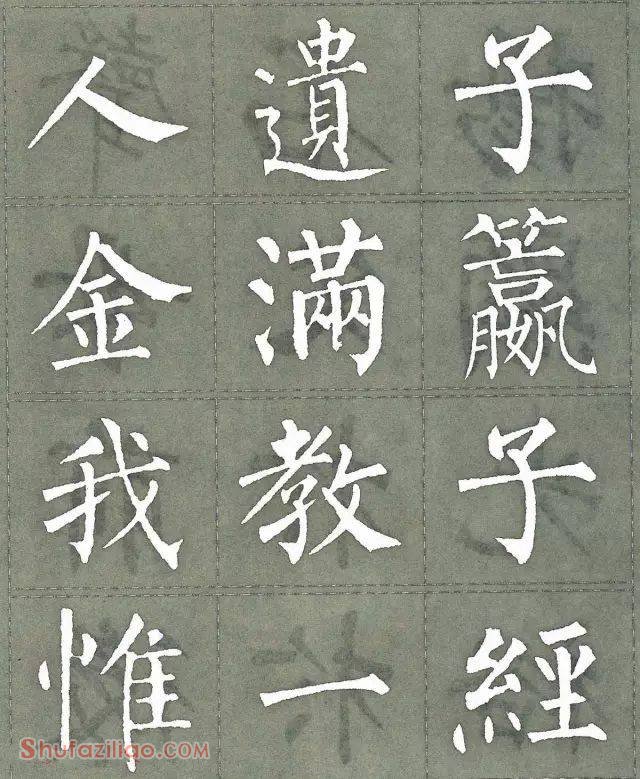 人遺子
金滿籯
我教子
惟一經
Shufaziliao.COM